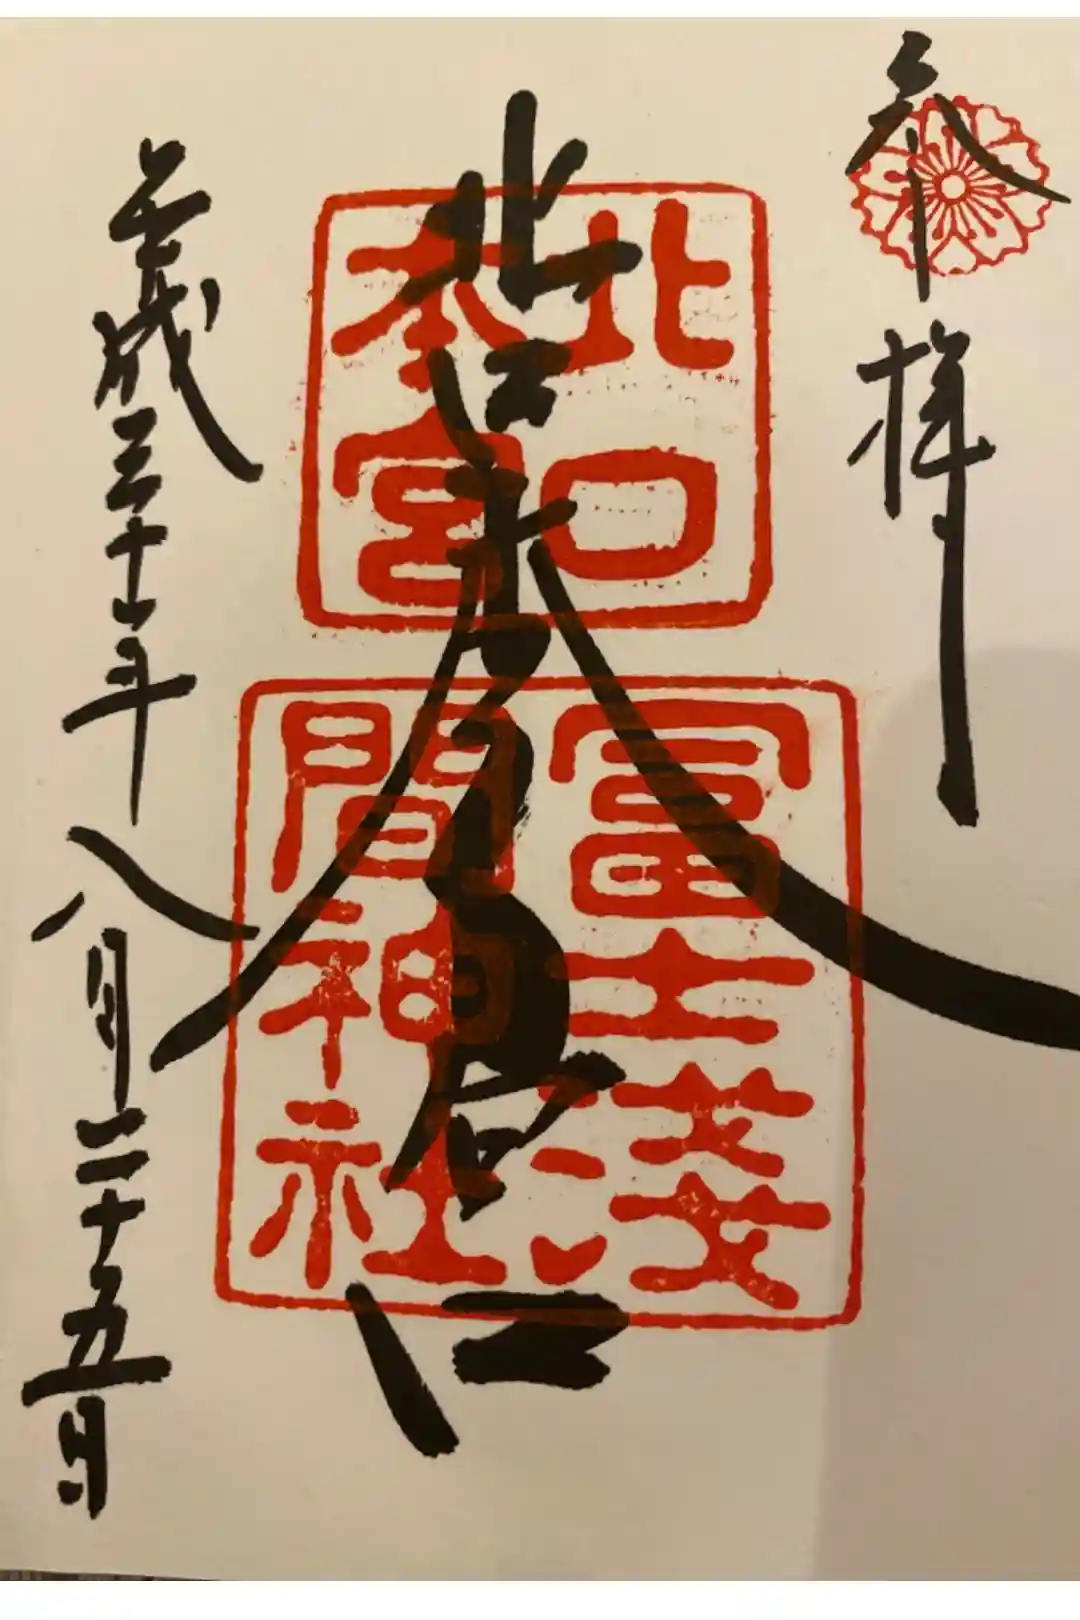 参拝
北口本宮
北口
本宮
冨士淺
間神社
平成三十年八月二十五日